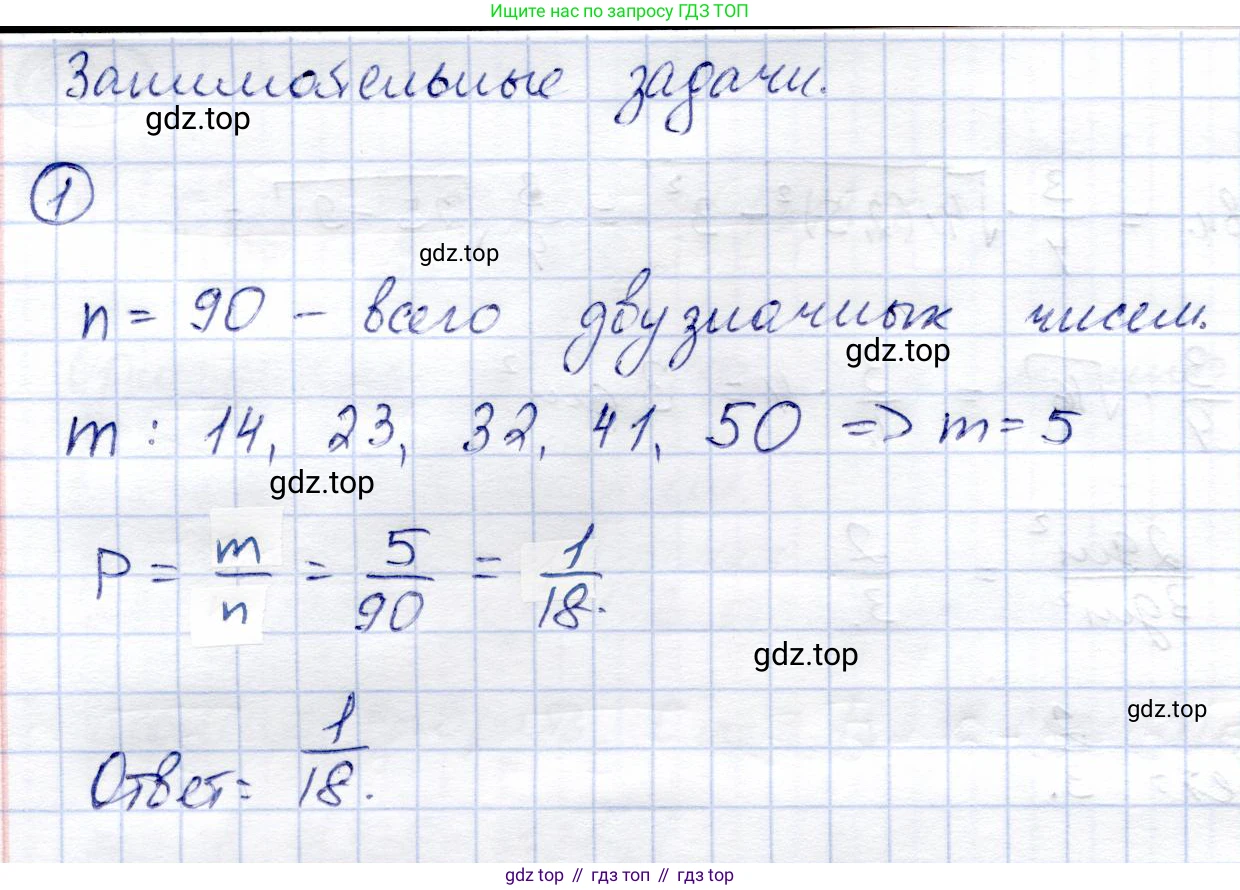 Ищите нас по запросу ГДЗ ТОП
Занимательные задачи.
gdz.top
1
gdz.top
n = 90 - всего двузначных чисел.
gdz.top
m : 14, 23, 32, 41, 50 => m = 5
gdz.top
P = m/n = 5/90 = 1/18.
gdz.top
gdz.top
Ответ: 1/18.
gdz top // гдз топ // гдз top